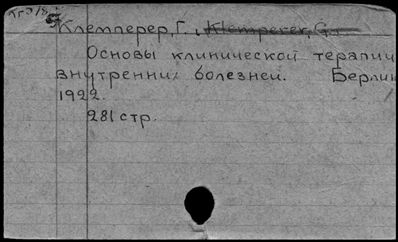 Клемперер, Г. , Klemperer, G.
Основы клинической терапии
внутренних болезней. Берлин
1922.
281 стр.